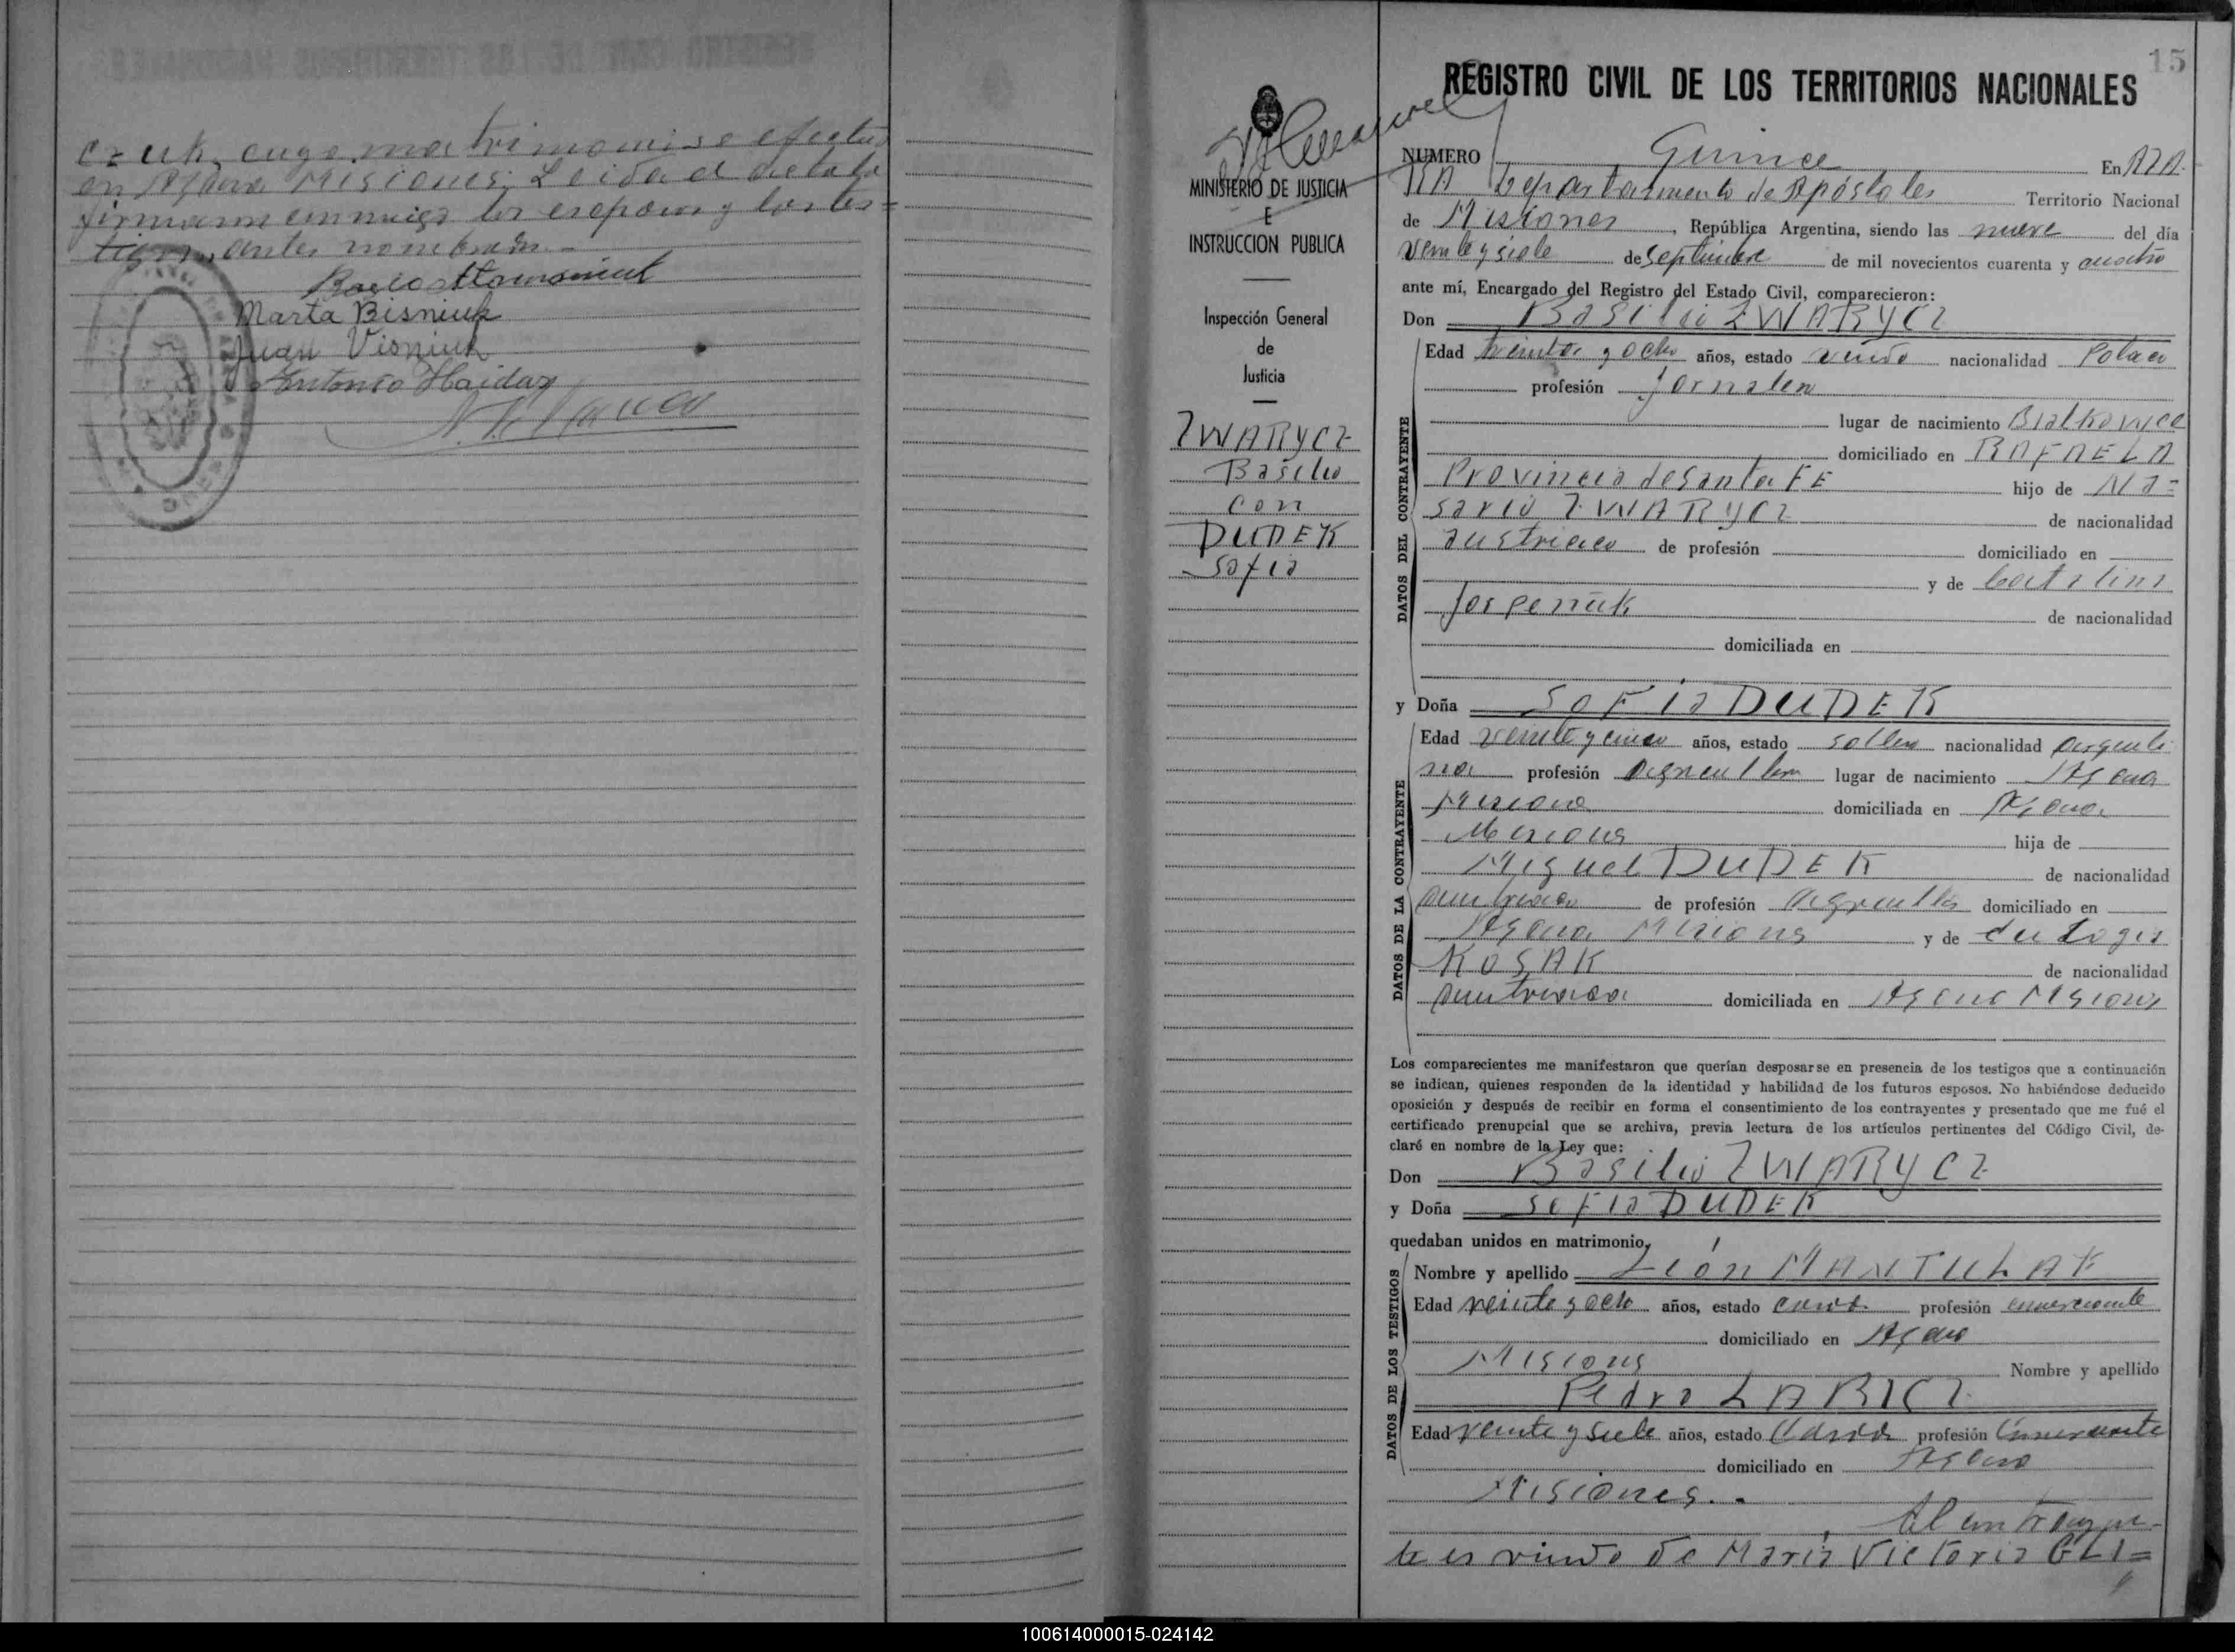 czuk, cuyo matrimonio se efectuó
en Azara Misiones. Leida el acta la
firmaron conmigo los esposos y los tes=
tigos, antes nombrados.-
Marta Bisniuk
Juan Visniuk
Antonio Haidaz
15
REGISTRO CIVIL DE LOS TERRITORIOS NACIONALES
MINISTERIO DE JUSTICIA
E
INSTRUCCION PUBLICA
Inspección General
de
Justicia
ZWARYCZ
Basilio
con
DUDEK
Sofia
NUMERO Quince En AZA-
RA Departamento de Apóstoles Territorio Nacional
de Misiones, República Argentina, siendo las nueve del día
veinte y siete de septiembre de mil novecientos cuarenta y cuatro
ante mí, Encargado del Registro del Estado Civil, comparecieron:
Don Basilio ZWARYCZ
DATOS DEL CONTRAYENTE
Edad treinta y ocho años, estado viudo nacionalidad Polaco
profesión Jornalero
lugar de nacimiento Bialkovyce
domiciliado en RAFAELA
Provincia de Santa FE hijo de Na=
sario ZWARYCZ de nacionalidad
austriaco de profesión domiciliado en
y de Catalina
de nacionalidad
domiciliada en
y Doña SOFIA DUDEK
DATOS DE LA CONTRAYENTE
Edad veinte y cinco años, estado soltera nacionalidad argenti
na profesión agricultora lugar de nacimiento Azara
Misiones domiciliada en Azara
Misiones hija de
Miguel DUDEK de nacionalidad
austriaco de profesión agricultor domiciliado en
Azara Misiones y de Eulogia
KOSAK de nacionalidad
austriaca domiciliada en Azara Misiones
Los comparecientes me manifestaron que querían desposarse en presencia de los testigos que a continuación
se indican, quienes responden de la identidad y habilidad de los futuros esposos. No habiéndose deducido
oposición y después de recibir en forma el consentimiento de los contrayentes y presentado que me fué el
certificado prenupcial que se archiva, previa lectura de los artículos pertinentes del Código Civil, de-
claré en nombre de la Ley que:
Don Basilio ZWARYCZ
y Doña SOFIA DUDEK
quedaban unidos en matrimonio,
DATOS DE LOS TESTIGOS
Nombre y apellido León MANTULAK
Edad veinte y ocho años, estado casado profesión comerciante
domiciliado en Azara
Misiones Nombre y apellido
Pedro LABICZ
Edad veinte y siete años, estado Casado profesión Comerciante
domiciliado en Azara
Misiones.-
El contrayen-
te es viudo de Maria Victoria GLI=
100614000015-024142